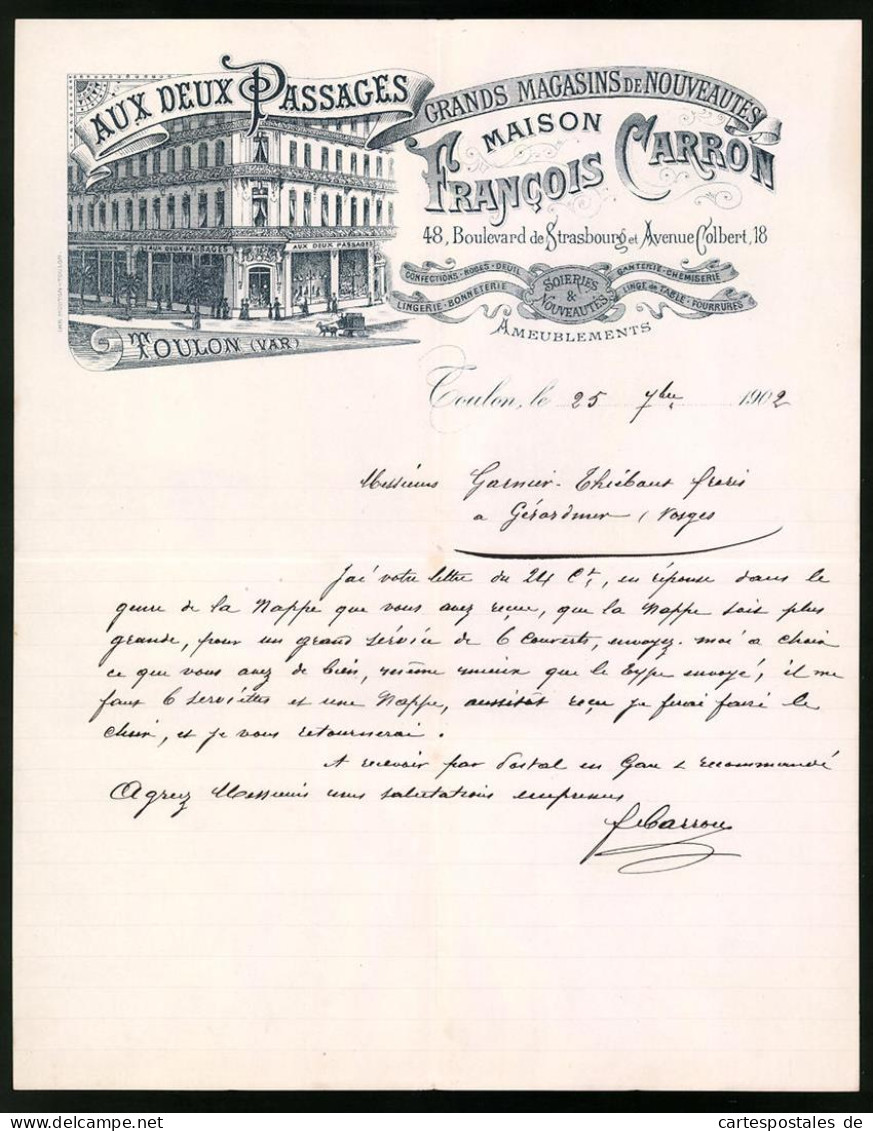 AUX DEUX PASSAGES
GRANDS MAGASINS DE NOUVEAUTÉS
MAISON
FRANÇOIS CARRON
48, Boulevard de Strasbourg et Avenue Colbert, 18
CONFECTIONS - ROBES - DEUIL
GANTERIE - CHEMISERIE
LINGERIE - BONNETERIE
SOIERIES
&
NOUVEAUTÉS
LINGE de TABLE - FOURRURES
AMEUBLEMENTS
AUX DEUX PASSAGES
AUX DEUX PASSAGES
TOULON (VAR)
Toulon, le 25 7bre 1902
Messieurs Garnier-Thiébaut frères
a Gérardmer (Vosges
J'ai votre lettre du 24 Ct, en réponse dans le
genre de la Nappe que vous avez reçue, que la Nappe soit plus
grande, pour un grand service de 6 Couverts, envoyez-moi a choix
ce que vous avez de bien, même mieux que le type envoyé, il me
faut 6 serviettes et une Nappe, aussitôt reçu je ferai faire le
choix, et je vous retournerai.
A recevoir par Postal en Gare & recommandé
Agréez Messieurs mes salutations empressées
f Carron
www.cartespostales.de